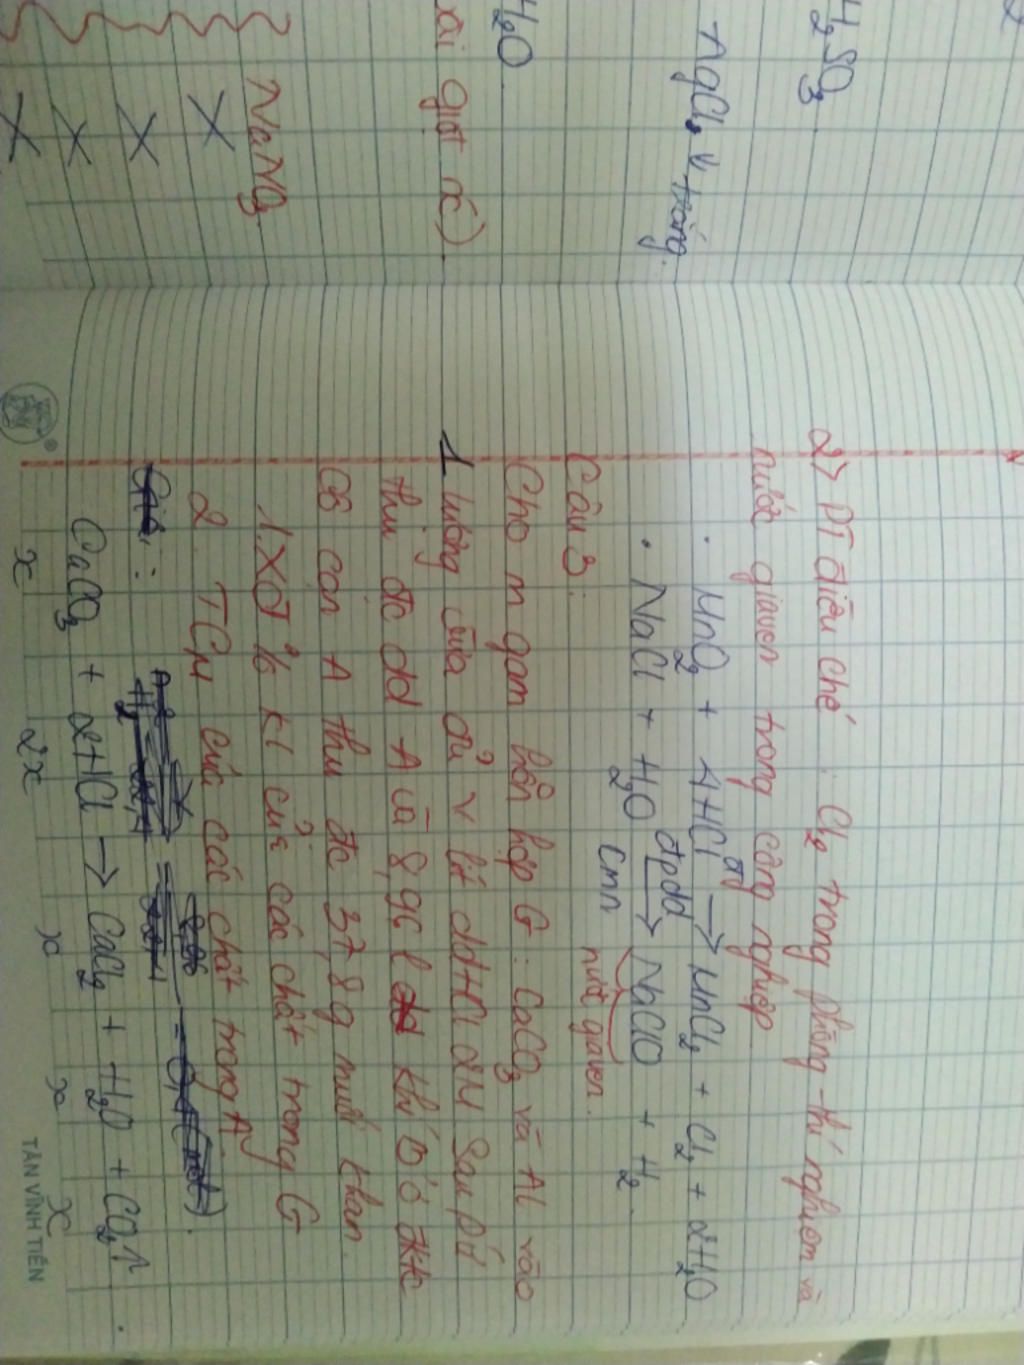 H₂SO₃
AgCl↓ trắng.
H₂O
giọt
NaNO₃
X
X
X
X
2> PT điều chế : Cl₂ trong phòng thí nghiệm và
nước giaven trong công nghiệp
. MnO₂ + 4HCl →(t°) MnCl₂ + Cl₂ + 2H₂O
. NaCl + H₂O →(đpdd, cmn) NaClO + H₂
nước giaven.
Câu 3:
Cho m gam hỗn hợp G : CaCO₃ và Al vào
1 lượng vừa đủ V lít ddHCl 2M Sau pứ
thu đc dd A và 8,96 l khí B ở đktc
Cô cạn A thu đc 37,8g muối khan.
1. XĐ % kl của các chất trong G
2. TCM của các chất trong A
CaCO₃ + 2HCl → CaCl₂ + H₂O + CO₂↑
x 2x x x x
TÂN VĨNH TIẾN